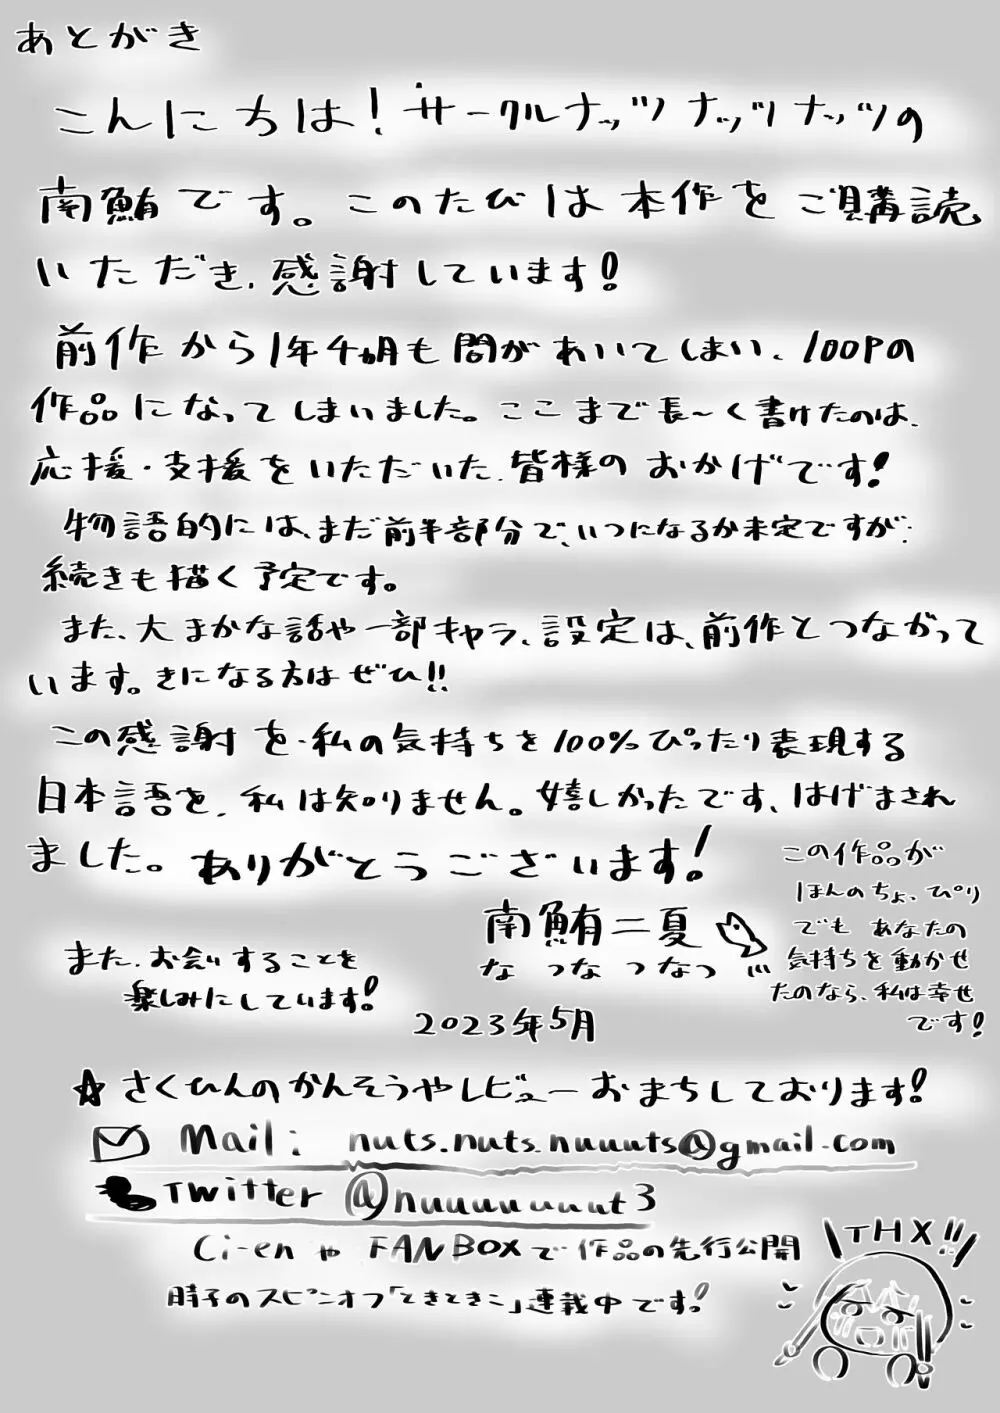 あとがき
こんにちは！サークルナッツナッツナッツの
南鮪です。このたびは本作をご購読
いただき、感謝しています！
前作から1年半期も間があいてしまい、100Pの
作品になってしまいました。ここまで長〜く書けたのは、
応援・支援をいただいた、皆様のおかげです！
物語的には、まだ前半部分で、いつになるか未定ですが、
続きも描く予定です。
また、大まかな話や一部キャラ、設定は、前作とつながって
います。きになる方はぜひ!!
この感謝を、私の気持ちを100%ぴったり表現する
日本語を、私は知りません。嬉しかったです、はげまされ
ました。ありがとうございます！
この作品が
ほんのちょっぴり
でもあなたの
気持ちを動かせ
たのなら、私は幸せ
です！
南鮪二夏
なつなつなつ
また、お会いすることを
楽しみにしています！
2023年5月
☆さくひんのかんそうやレビューおまちしております！
Mail: nuts.nuts.nuuuts@gmail.com
Twitter @nuuuuuuut3
Ci-enやFANBOXで作品の先行公開
時子のスピンオフ「ときときこ」連載中です！
THX!!